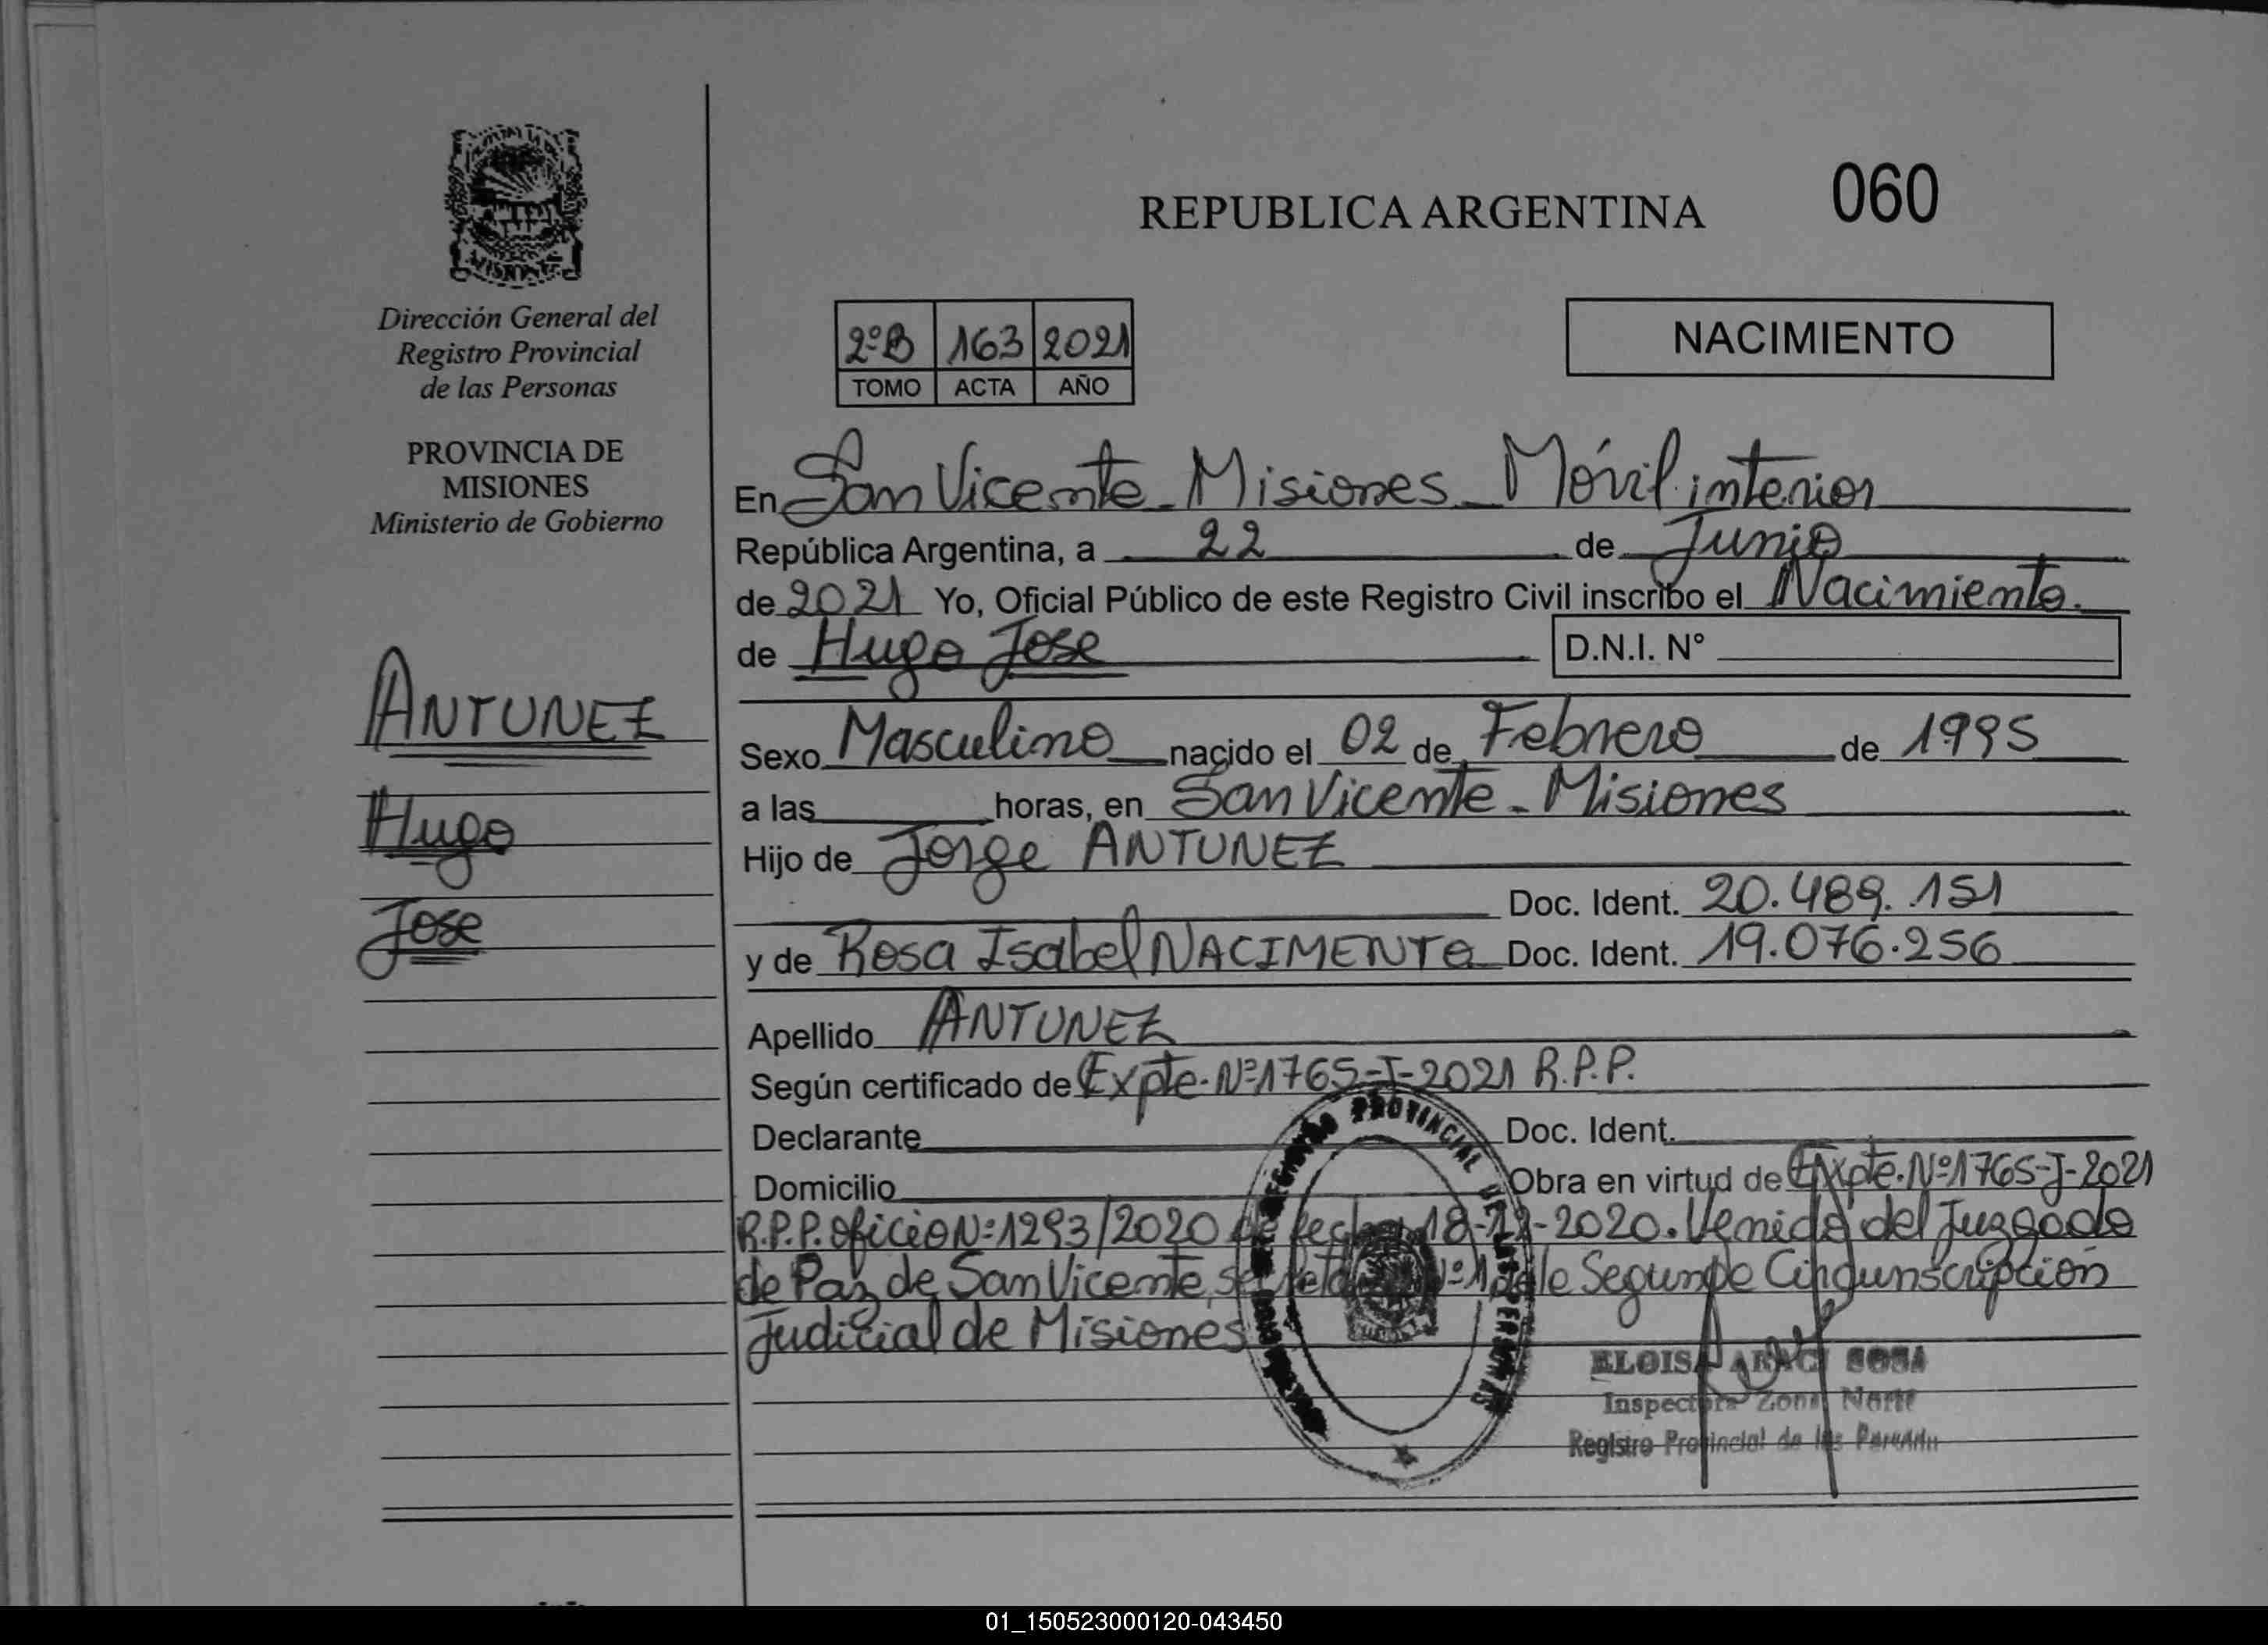 REPUBLICA ARGENTINA
060
Dirección General del
Registro Provincial
de las Personas
PROVINCIA DE
MISIONES
Ministerio de Gobierno
2ºB 163 2021
TOMO ACTA AÑO
NACIMIENTO
En San Vicente - Misiones - Móvil interior
República Argentina, a 22 de Junio
de 2021 Yo, Oficial Público de este Registro Civil inscribo el Nacimiento.
de Hugo Jose D.N.I. N°
ANTUNEZ
Hugo
Jose
Sexo Masculino nacido el 02 de Febrero de 1995
a las horas, en San Vicente - Misiones
Hijo de Jorge ANTUNEZ
Doc. Ident. 20.489.151
y de Rosa Isabel NACIMENTO Doc. Ident. 19.076.256
Apellido ANTUNEZ
Según certificado de Expte. Nº1765-J-2021 R.P.P.
Declarante Doc. Ident.
Domicilio Obra en virtud de Expte. Nº1765-J-2021
R.P.P. oficio Nº1293/2020 de fecha 18- -2020. Venido del Juzgado
de Paz de San Vicente, Nº1 de le Segunde Circunscripción
Judicial de Misiones
PROVINCIAL
ELOISA ARACI SOSA
Inspectora Zona Norte
Registro Provincial de las Personas
01_150523000120-043450